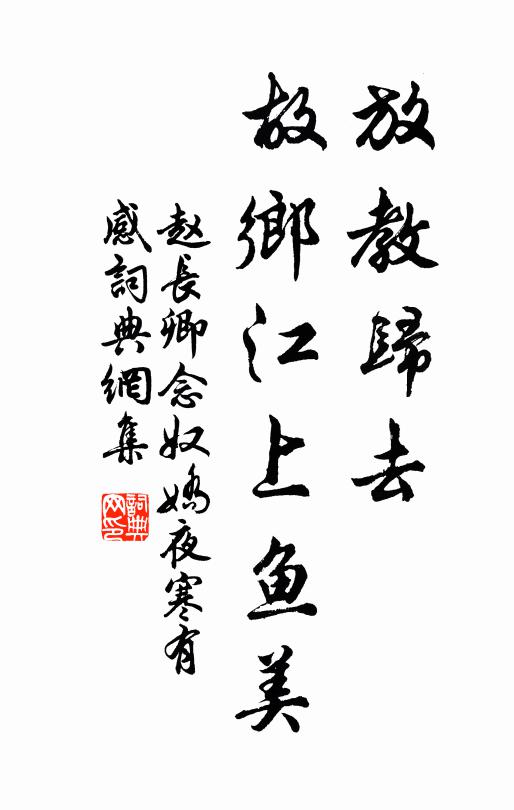 放教歸去
故鄉江上鱼美
赵長卿念奴嬌夜寒有
感詞典網集
詞典
网印